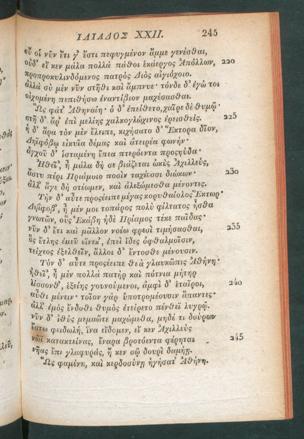 ΙΛΙΑΔΟΣ XXII. 245
οὔ οἱ νῦν ἔτι γ' ἔστι πεφυγμένον ἄμμε γενέσθαι,
οὐδ' εἴ κεν μάλα πολλὰ πάθοι ἑκάεργος Ἀπόλλων, 220
προπροκυλινδόμενος πατρὸς Διὸς αἰγιόχοιο.
ἀλλὰ σὺ μὲν νῦν στῆθι καὶ ἄμπνυε· τόνδε δ' ἐγώ τοι
οἰχομένη πεπιθήσω ἐναντίβιον μαχέσασθαι.
Ὣς φάτ' Ἀθηναίη· ὁ δ' ἐπείθετο, χαῖρε δὲ θυμῷ·
στῆ δ' ἄρ' ἐπὶ μελίης χαλκογλώχινος ἐρεισθείς. 225
ἡ δ' ἄρα τὸν μὲν ἔλειπε, κιχήσατο δ' Ἕκτορα δῖον,
Δηϊφόβῳ εἰκυῖα δέμας καὶ ἀτειρέα φωνήν·
ἀγχοῦ δ' ἱσταμένη ἔπεα πτερόεντα προσηύδα·
Ἠθεῖ', ἦ μάλα δή σε βιάζεται ὠκὺς Ἀχιλλεύς,
ἄστυ πέρι Πριάμοιο ποσὶν ταχέεσσι διώκων· 230
ἀλλ' ἄγε δὴ στέωμεν, καὶ ἀλεξώμεσθα μένοντες.
Τὴν δ' αὖτε προσέειπε μέγας κορυθαίολος Ἕκτωρ·
Δηΐφοβ', ἦ μέν μοι τοπάρος πολὺ φίλτατος ἦσθα
γνωτῶν, οὓς Ἑκάβη ἠδὲ Πρίαμος τέκε παῖδας·
νῦν δ' ἔτι καὶ μᾶλλον νοέω φρεσὶ τιμήσασθαι, 235
ὃς ἔτλης ἐμεῦ εἵνεκ', ἐπεὶ ἴδες ὀφθαλμοῖσιν,
τείχεος ἐξελθεῖν, ἄλλοι δ' ἔντοσθε μένουσιν.
Τὸν δ' αὖτε προσέειπε θεὰ γλαυκῶπις Ἀθήνη·
ἠθεῖ', ἦ μὲν πολλὰ πατὴρ καὶ πότνια μήτηρ
λίσσονθ', ἑξείης γουνούμενοι, ἀμφὶ δ' ἑταῖροι, 240
αὖθι μένειν· τοῖον γὰρ ὑποτρομέουσιν ἅπαντες·
ἀλλ' ἐμὸς ἔνδοθι θυμὸς ἐτείρετο πένθεϊ λυγρῷ.
νῦν δ' ἰθὺς μεμαῶτε μαχώμεθα, μηδέ τι δούρων
ἔστω φειδωλή, ἵνα εἴδομεν, εἴ κεν Ἀχιλλεὺς
νῶϊ κατακτείνας, ἔναρα βροτόεντα φέρηται 245
νῆας ἔπι γλαφυράς, ἤ κεν σῷ δουρὶ δαμήῃ.
Ὣς φαμένη, καὶ κερδοσύνῃ ἡγήσατ' Ἀθήνη.